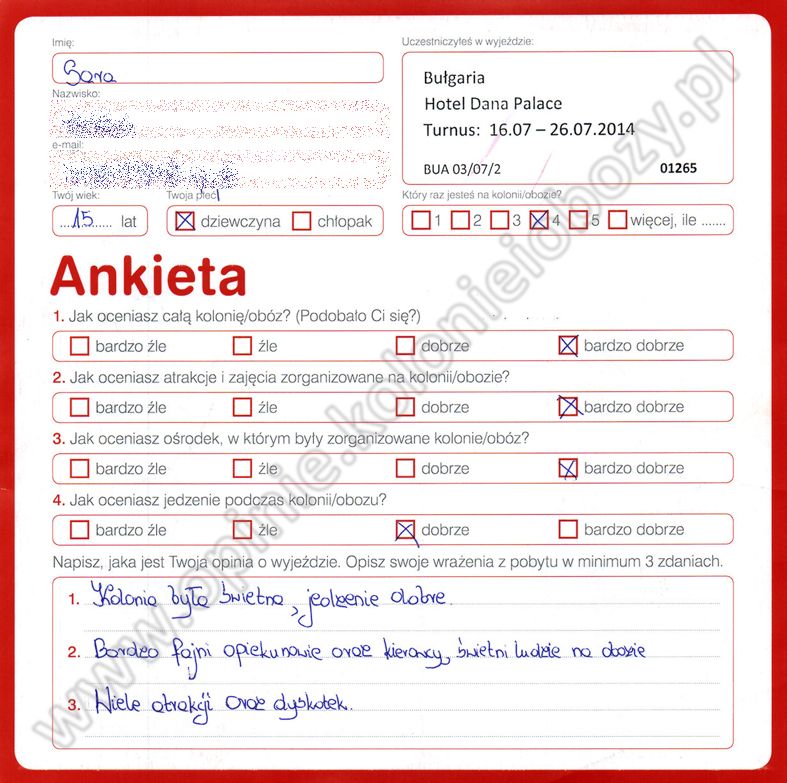 Imię:
Sara
Nazwisko:
e-mail:
Twój wiek:
15 lat
Twoja płeć
dziewczyna chłopak
Uczestniczyłeś w wyjeździe:
Bułgaria
Hotel Dana Palace
Turnus: 16.07 – 26.07.2014
BUA 03/07/2 01265
Który raz jesteś na kolonii/obozie?
1 2 3 4 5 więcej, ile .......
Ankieta
1. Jak oceniasz całą kolonię/obóz? (Podobało Ci się?)
bardzo źle źle dobrze bardzo dobrze
2. Jak oceniasz atrakcje i zajęcia zorganizowane na kolonii/obozie?
bardzo źle źle dobrze bardzo dobrze
3. Jak oceniasz ośrodek, w którym były zorganizowane kolonie/obóz?
bardzo źle źle dobrze bardzo dobrze
4. Jak oceniasz jedzenie podczas kolonii/obozu?
bardzo źle źle dobrze bardzo dobrze
Napisz, jaka jest Twoja opinia o wyjeździe. Opisz swoje wrażenia z pobytu w minimum 3 zdaniach.
1. Kolonia była świetna, jedzenie dobre.
2. Bardzo fajni opiekunowie oraz kierowcy, świetni ludzie na obozie
3. Wiele atrakcji oraz dyskotek.
www.opinie.kolonieiobozy.pl